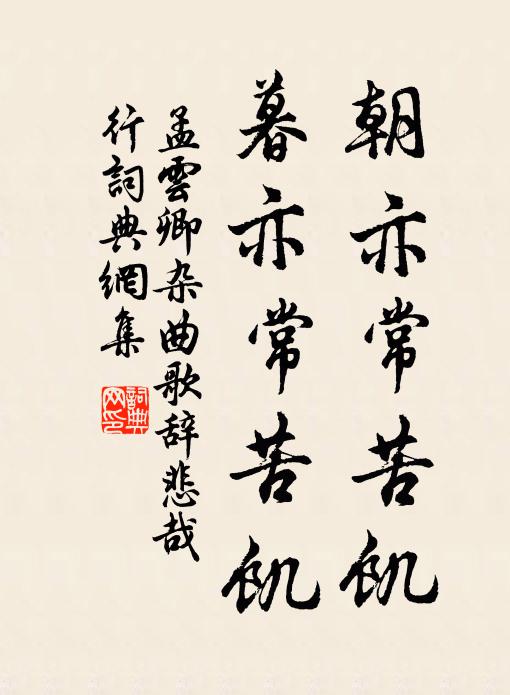 朝亦常苦飢
暮亦常苦飢
孟雲卿杂曲歌辞悲哉
行詞典網集
詞典
网印